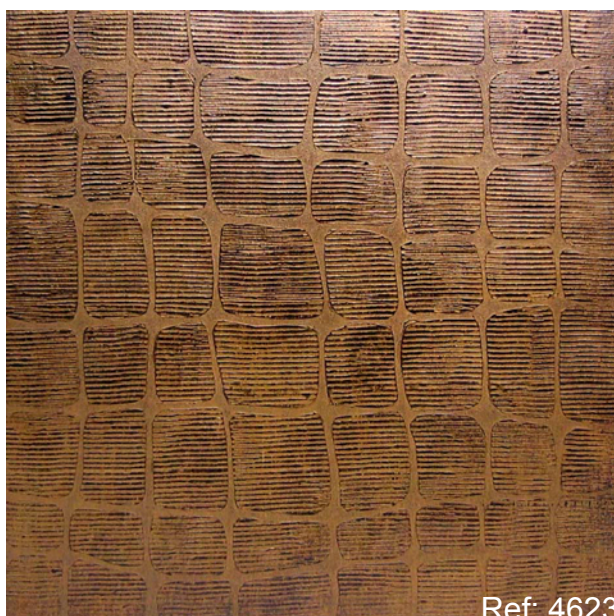 Ref: 4623